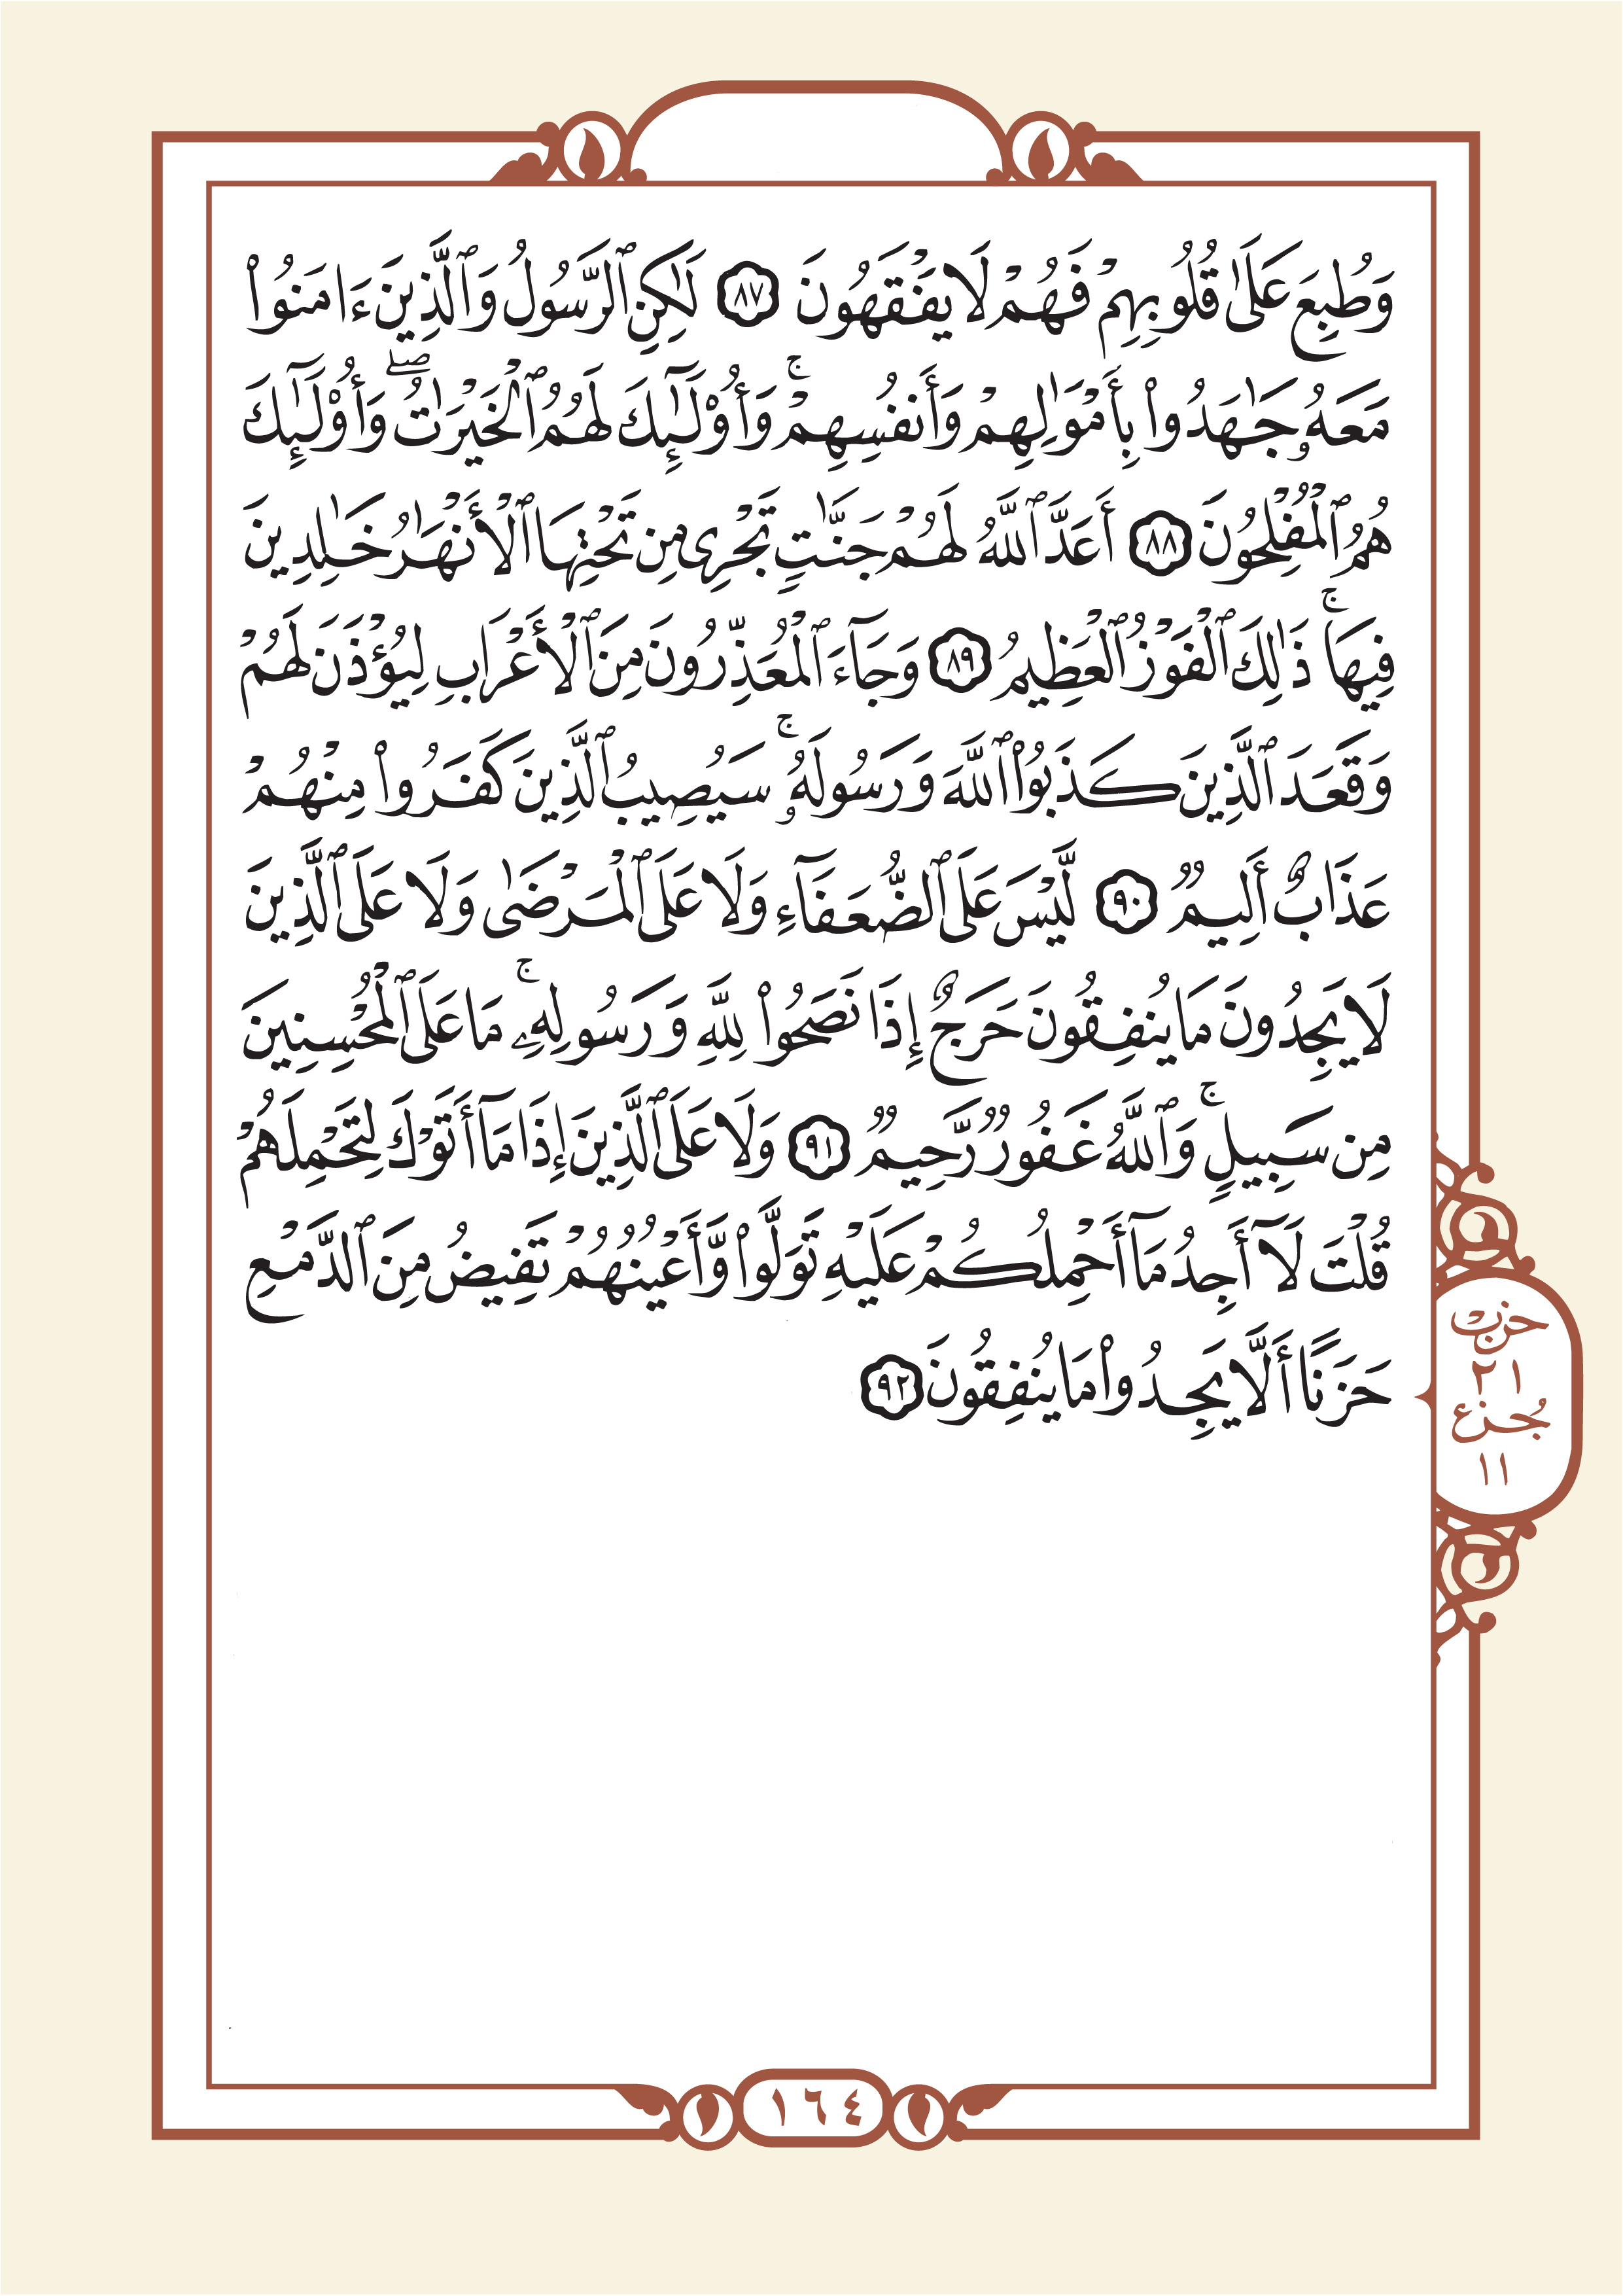 وَطُبِعَ عَلَىٰ قُلُوبِهِمْ فَهُمْ لَا يَفْقَهُونَ ٨٧ لَٰكِنِ ٱلرَّسُولُ وَٱلَّذِينَ ءَامَنُوا۟
مَعَهُۥ جَٰهَدُوا۟ بِأَمْوَٰلِهِمْ وَأَنفُسِهِمْ ۚ وَأُو۟لَٰٓئِكَ لَهُمُ ٱلْخَيْرَٰتُ ۖ وَأُو۟لَٰٓئِكَ
هُمُ ٱلْمُفْلِحُونَ ٨٨ أَعَدَّ ٱللَّهُ لَهُمْ جَنَّٰتٍ تَجْرِى مِن تَحْتِهَا ٱلْأَنْهَٰرُ خَٰلِدِينَ
فِيهَا ۚ ذَٰلِكَ ٱلْفَوْزُ ٱلْعَظِيمُ ٨٩ وَجَآءَ ٱلْمُعَذِّرُونَ مِنَ ٱلْأَعْرَابِ لِيُؤْذَنَ لَهُمْ
وَقَعَدَ ٱلَّذِينَ كَذَبُوا۟ ٱللَّهَ وَرَسُولَهُۥ ۚ سَيُصِيبُ ٱلَّذِينَ كَفَرُوا۟ مِنْهُمْ
عَذَابٌ أَلِيمٌ ٩٠ لَّيْسَ عَلَى ٱلضُّعَفَآءِ وَلَا عَلَى ٱلْمَرْضَىٰ وَلَا عَلَى ٱلَّذِينَ
لَا يَجِدُونَ مَا يُنفِقُونَ حَرَجٌ إِذَا نَصَحُوا۟ لِلَّهِ وَرَسُولِهِۦ ۚ مَا عَلَى ٱلْمُحْسِنِينَ
مِن سَبِيلٍ ۚ وَٱللَّهُ غَفُورٌ رَّحِيمٌ ٩١ وَلَا عَلَى ٱلَّذِينَ إِذَا مَآ أَتَوْكَ لِتَحْمِلَهُمْ
قُلْتَ لَآ أَجِدُ مَآ أَحْمِلُكُمْ عَلَيْهِ تَوَلَّوا۟ وَّأَعْيُنُهُمْ تَفِيضُ مِنَ ٱلدَّمْعِ
حَزَنًا أَلَّا يَجِدُوا۟ مَا يُنفِقُونَ ٩٢
حزب
٢١
جُزء
١١
١٦٤